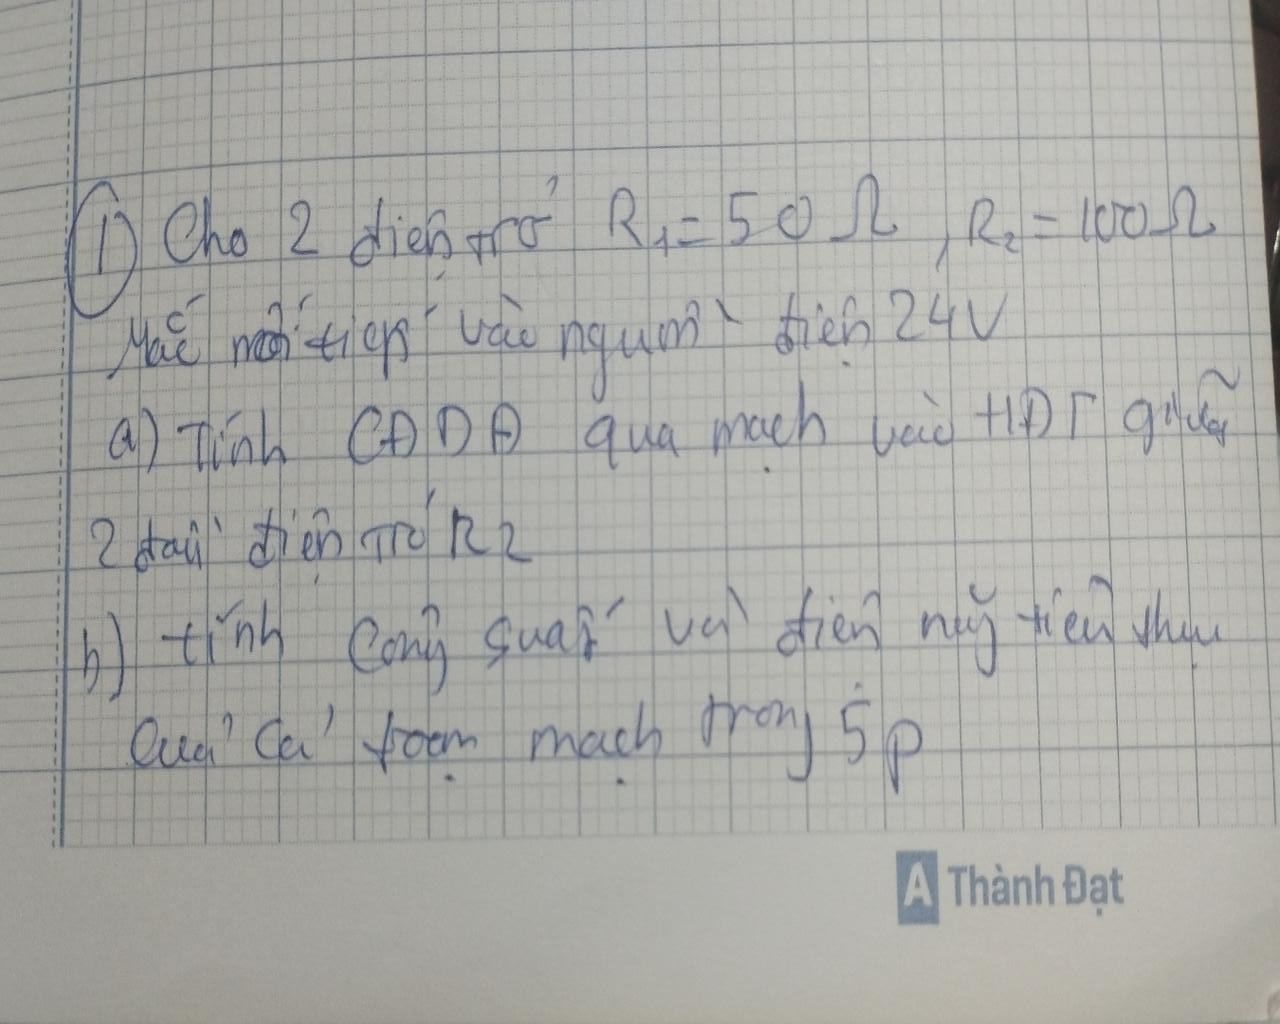 ① Cho 2 điện trở R₁ = 50 Ω, R₂ = 100 Ω
Mắc nối tiếp vào nguồn điện 24V
a) Tính CĐDĐ qua mạch và HĐT giữa
2 đầu điện trở R2
b) tính công suất và điện năng tiêu thụ
của cả đoạn mạch trong 5p
A Thành Đạt